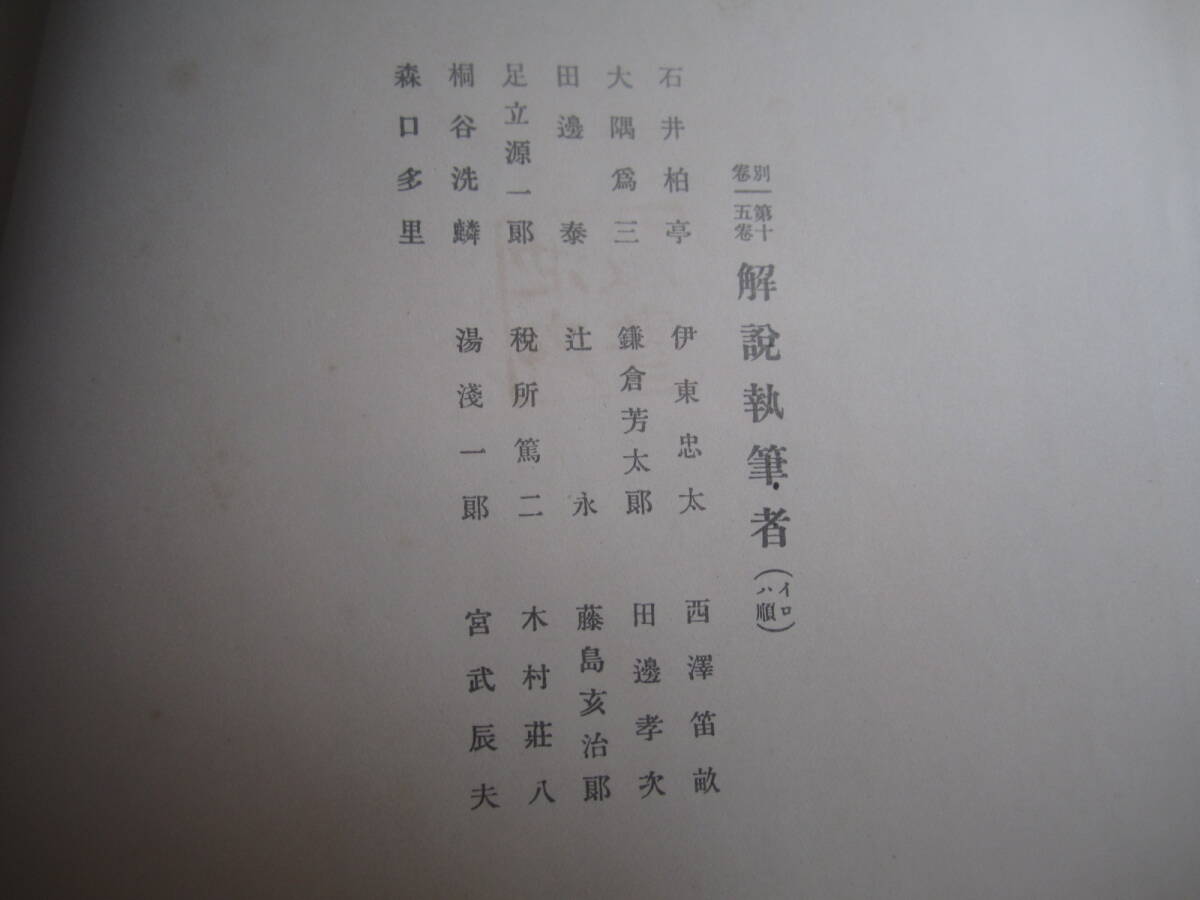 別卷｜第十五卷 解說執筆者（イロハ順）
石井柏亭 伊東忠太 西澤笛畝
大隅爲三 鎌倉芳太郞 田邊孝次
田邊泰 辻永 藤島亥治郞
足立源一郞 稅所篤二 木村莊八
桐谷洗鱗 湯淺一郞 宮武辰夫
森口多里